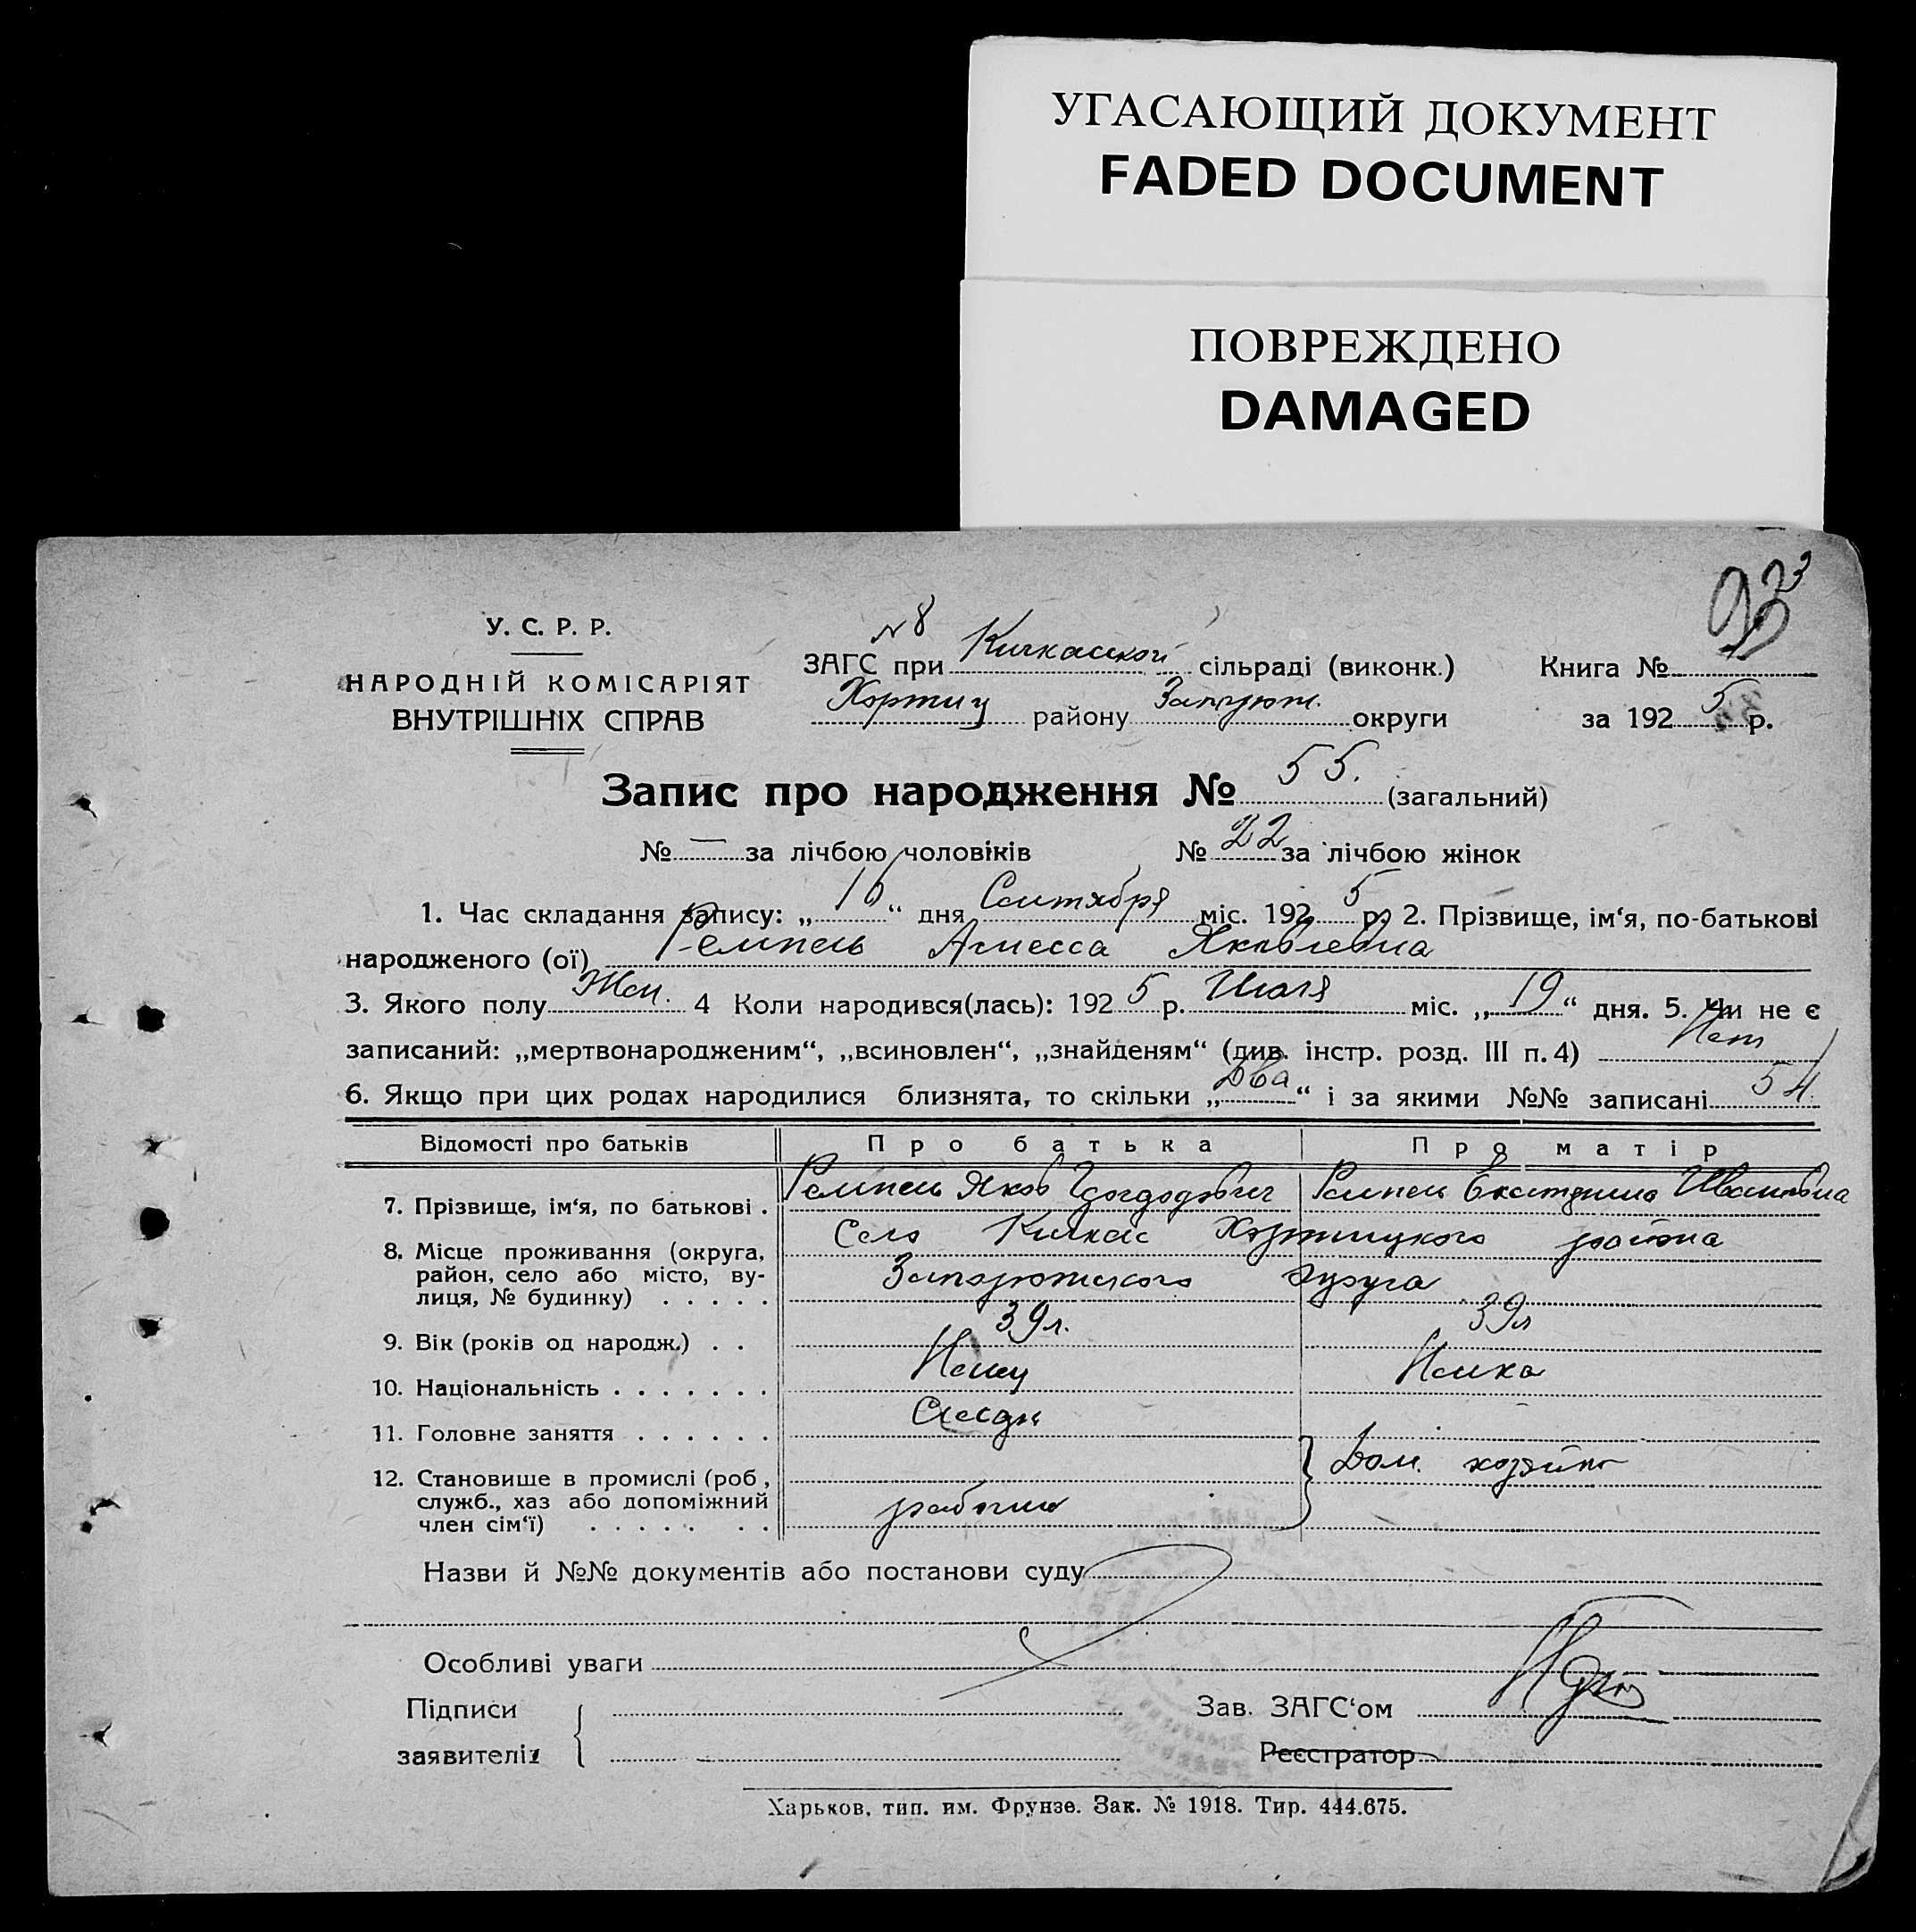 УГАСАЮЩИЙ ДОКУМЕНТ
FADED DOCUMENT
ПОВРЕЖДЕНО
DAMAGED
У. С. Р. Р.
НАРОДНІЙ КОМІСАРІЯТ
ВНУТРІШНІХ СПРАВ
№ 8
ЗАГС при Кичкасской сільраді (виконк.)
Хортиц району Запорож. округи
Книга №
за 1925 р.
Запис про народження № 55. (загальний)
№ — за лічбою чоловіків № 22 за лічбою жінок
1. Час складання запису: „16“ дня Сентября міс. 1925 р. 2. Прізвище, ім‘я, по-батькові
народженого (ої) Ремпель Яковлевна
3. Якого полу Жен. 4 Коли народився(лась): 1925 р. Июля міс. „19“ дня. 5. Чи не є
записаний: „мертвонародженим“, „всиновлен“, „знайденям“ (див. інстр. розд. III п. 4) Нет
6. Якщо при цих родах народилися близнята, то скільки „Два“ і за якими №№ записані 54
Відомості про батьків Про батька Про матір
7. Прізвище, ім‘я, по батькові . Ремпель Яков Ремпель Екатерина Ивановна
8. Місце проживання (округа, район, село або місто, ву-
лиця, № будинку) . . . . . Село Кичкас Хортицкого района
Запорожского округа
9. Вік (років од народж.) . . 39 л. 39 л
10. Національність . . . . . . . Немец Немка
11. Головне заняття . . . . . . Слесарь
12. Становише в промислі (роб,
служб., хаз або допоміжний
член сім‘ї) . . . . . . . рабочий Дом. хозяйка
Назви й №№ документів або постанови суду
Особливі уваги
Підписи
заявителів
Зав. ЗАГС‘ом
Реєстратор
Харьков, тип. им. Фрунзе. Зак. № 1918. Тир. 444.675.